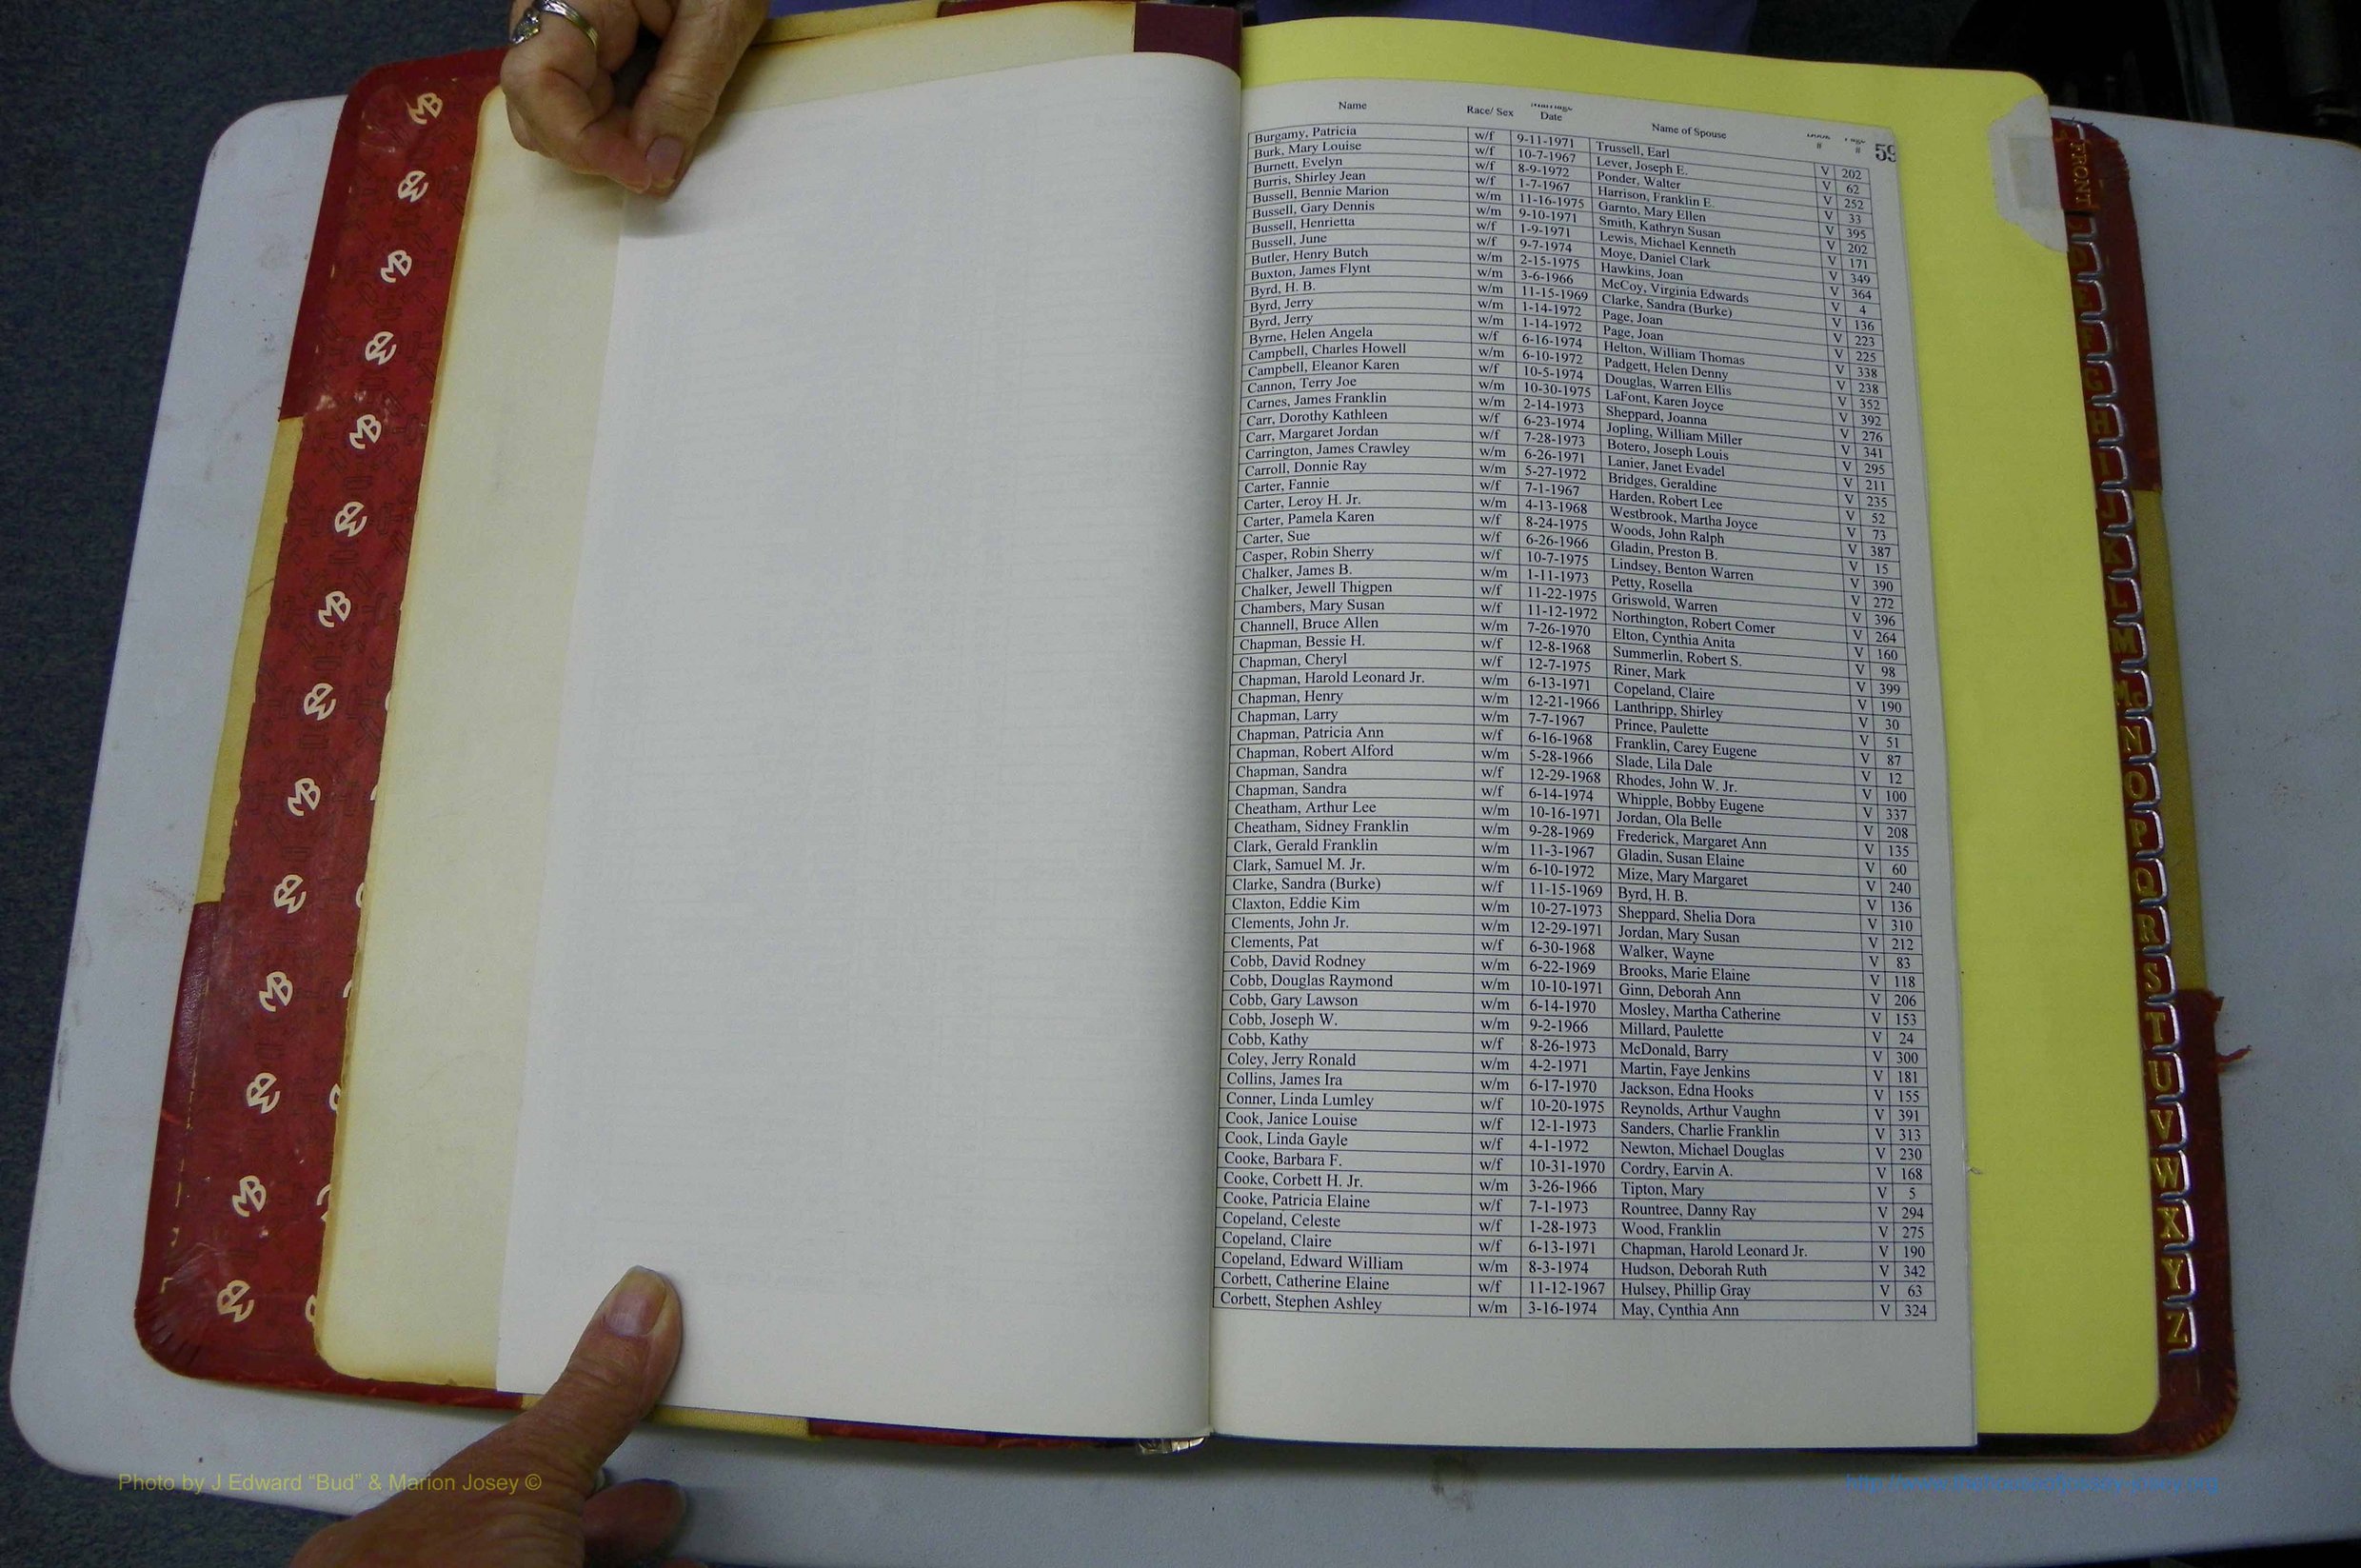 Name Race/ Sex Marriage Date Name of Spouse Book # Page # 59
Burgamy, Patricia w/f 9-11-1971 Trussell, Earl V 202
Burk, Mary Louise w/f 10-7-1967 Lever, Joseph E. V 62
Burnett, Evelyn w/f 8-9-1972 Ponder, Walter V 252
Burris, Shirley Jean w/f 1-7-1967 Harrison, Franklin E. V 33
Bussell, Bennie Marion w/m 11-16-1975 Garnto, Mary Ellen V 395
Bussell, Gary Dennis w/m 9-10-1971 Smith, Kathryn Susan V 202
Bussell, Henrietta w/f 1-9-1971 Lewis, Michael Kenneth V 171
Bussell, June w/f 9-7-1974 Moye, Daniel Clark V 349
Butler, Henry Butch w/m 2-15-1975 Hawkins, Joan V 364
Buxton, James Flynt w/m 3-6-1966 McCoy, Virginia Edwards V 4
Byrd, H. B. w/m 11-15-1969 Clarke, Sandra (Burke) V 136
Byrd, Jerry w/m 1-14-1972 Page, Joan V 223
Byrd, Jerry w/m 1-14-1972 Page, Joan V 225
Byrne, Helen Angela w/f 6-16-1974 Helton, William Thomas V 338
Campbell, Charles Howell w/m 6-10-1972 Padgett, Helen Denny V 238
Campbell, Eleanor Karen w/f 10-5-1974 Douglas, Warren Ellis V 352
Cannon, Terry Joe w/m 10-30-1975 LaFont, Karen Joyce V 392
Carnes, James Franklin w/m 2-14-1973 Sheppard, Joanna V 276
Carr, Dorothy Kathleen w/f 6-23-1974 Jopling, William Miller V 341
Carr, Margaret Jordan w/f 7-28-1973 Botero, Joseph Louis V 295
Carrington, James Crawley w/m 6-26-1971 Lanier, Janet Evadel V 211
Carroll, Donnie Ray w/m 5-27-1972 Bridges, Geraldine V 235
Carter, Fannie w/f 7-1-1967 Harden, Robert Lee V 52
Carter, Leroy H. Jr. w/m 4-13-1968 Westbrook, Martha Joyce V 73
Carter, Pamela Karen w/f 8-24-1975 Woods, John Ralph V 387
Carter, Sue w/f 6-26-1966 Gladin, Preston B. V 15
Casper, Robin Sherry w/f 10-7-1975 Lindsey, Benton Warren V 390
Chalker, James B. w/m 1-11-1973 Petty, Rosella V 272
Chalker, Jewell Thigpen w/f 11-22-1975 Griswold, Warren V 396
Chambers, Mary Susan w/f 11-12-1972 Northington, Robert Comer V 264
Channell, Bruce Allen w/m 7-26-1970 Elton, Cynthia Anita V 160
Chapman, Bessie H. w/f 12-8-1968 Summerlin, Robert S. V 98
Chapman, Cheryl w/f 12-7-1975 Riner, Mark V 399
Chapman, Harold Leonard Jr. w/m 6-13-1971 Copeland, Claire V 190
Chapman, Henry w/m 12-21-1966 Lanthripp, Shirley V 30
Chapman, Larry w/m 7-7-1967 Prince, Paulette V 51
Chapman, Patricia Ann w/f 6-16-1968 Franklin, Carey Eugene V 87
Chapman, Robert Alford w/m 5-28-1966 Slade, Lila Dale V 12
Chapman, Sandra w/f 12-29-1968 Rhodes, John W. Jr. V 100
Chapman, Sandra w/f 6-14-1974 Whipple, Bobby Eugene V 337
Cheatham, Arthur Lee w/m 10-16-1971 Jordan, Ola Belle V 208
Cheatham, Sidney Franklin w/m 9-28-1969 Frederick, Margaret Ann V 135
Clark, Gerald Franklin w/m 11-3-1967 Gladin, Susan Elaine V 60
Clark, Samuel M. Jr. w/m 6-10-1972 Mize, Mary Margaret V 240
Clarke, Sandra (Burke) w/f 11-15-1969 Byrd, H. B. V 136
Claxton, Eddie Kim w/m 10-27-1973 Sheppard, Shelia Dora V 310
Clements, John Jr. w/m 12-29-1971 Jordan, Mary Susan V 212
Clements, Pat w/f 6-30-1968 Walker, Wayne V 83
Cobb, David Rodney w/m 6-22-1969 Brooks, Marie Elaine V 118
Cobb, Douglas Raymond w/m 10-10-1971 Ginn, Deborah Ann V 206
Cobb, Gary Lawson w/m 6-14-1970 Mosley, Martha Catherine V 153
Cobb, Joseph W. w/m 9-2-1966 Millard, Paulette V 24
Cobb, Kathy w/f 8-26-1973 McDonald, Barry V 300
Coley, Jerry Ronald w/m 4-2-1971 Martin, Faye Jenkins V 181
Collins, James Ira w/m 6-17-1970 Jackson, Edna Hooks V 155
Conner, Linda Lumley w/f 10-20-1975 Reynolds, Arthur Vaughn V 391
Cook, Janice Louise w/f 12-1-1973 Sanders, Charlie Franklin V 313
Cook, Linda Gayle w/f 4-1-1972 Newton, Michael Douglas V 230
Cooke, Barbara F. w/f 10-31-1970 Cordry, Earvin A. V 168
Cooke, Corbett H. Jr. w/m 3-26-1966 Tipton, Mary V 5
Cooke, Patricia Elaine w/f 7-1-1973 Rountree, Danny Ray V 294
Copeland, Celeste w/f 1-28-1973 Wood, Franklin V 275
Copeland, Claire w/f 6-13-1971 Chapman, Harold Leonard Jr. V 190
Copeland, Edward William w/m 8-3-1974 Hudson, Deborah Ruth V 342
Corbett, Catherine Elaine w/f 11-12-1967 Hulsey, Phillip Gray V 63
Corbett, Stephen Ashley w/m 3-16-1974 May, Cynthia Ann V 324
FRONT
M
Mc
N
O
P
Q
R
S
T
U
V
W
X
Y
Z
Photo by J Edward “Bud” & Marion Josey ©